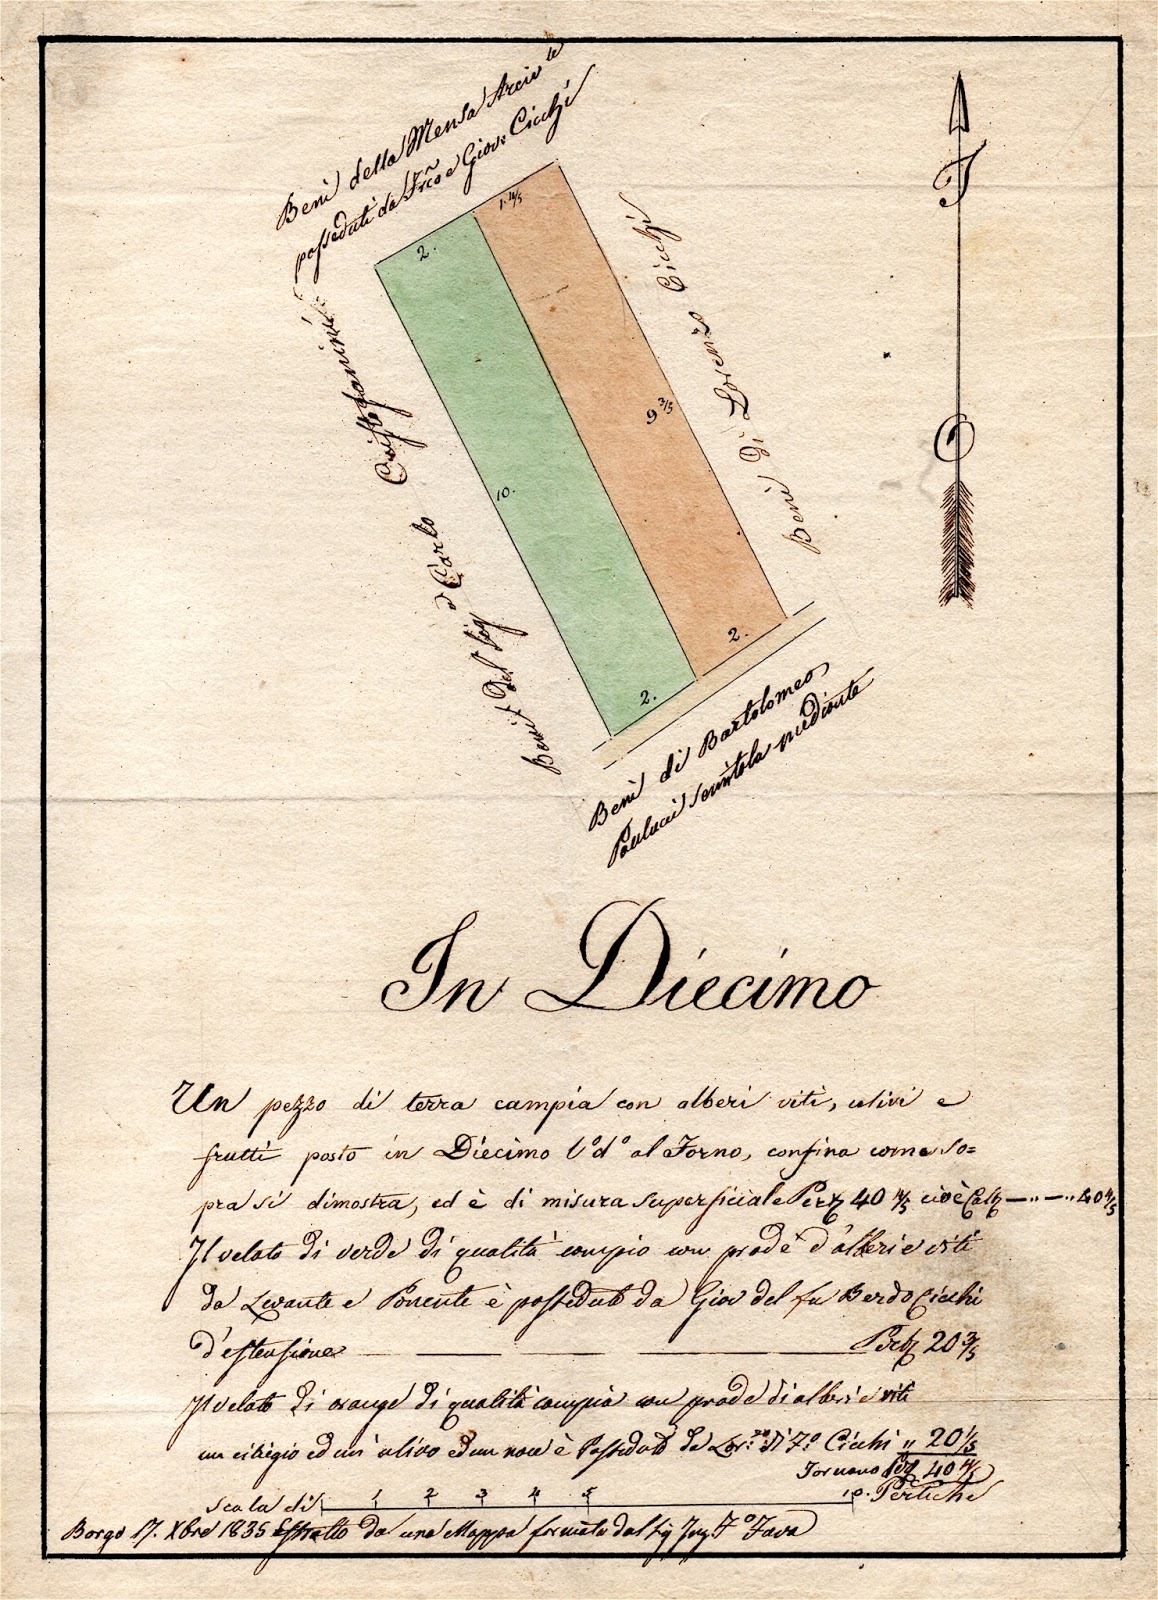 Beni della Mensa Arciv.le
posseduti da Frco e Giov: Cicchi
T
2.
1. 4/5
9 3/5
10.
2.
2.
Beni del Sig.r Carlo Cristofanini
Beni Di Lorenzo Cicchi
Beni di Bartolomeo
Paulucci semitola mediante
In Diecimo
Un pezzo di terra campia con alberi viti, ulivi e
frutti posto in Diecimo l.o d.o al Forno, confina come so=
pra si dimostra, ed è di misura superficiale Per 40 4/5 cioè 40 4/5
Il velato di verde di qualità campia con prode d'alberi e viti
da Levante e Ponente è posseduto da Giov del fu Berdo Cicchi
d'estensione Per 20 3/5
Il velato di orange di qualità campia con prode di alberi e viti
un ciliegio ed un ulivo ed un noce è Posseduto da Lor.zo di F.o Cicchi " 20 1/5
Tornano Per 40 4/5
scala di 1 2 3 4 5 10. Pertiche
Borgo 17. Xbre 1835 Estratto da una Mappa formata dal Sig Ing F.o Fava